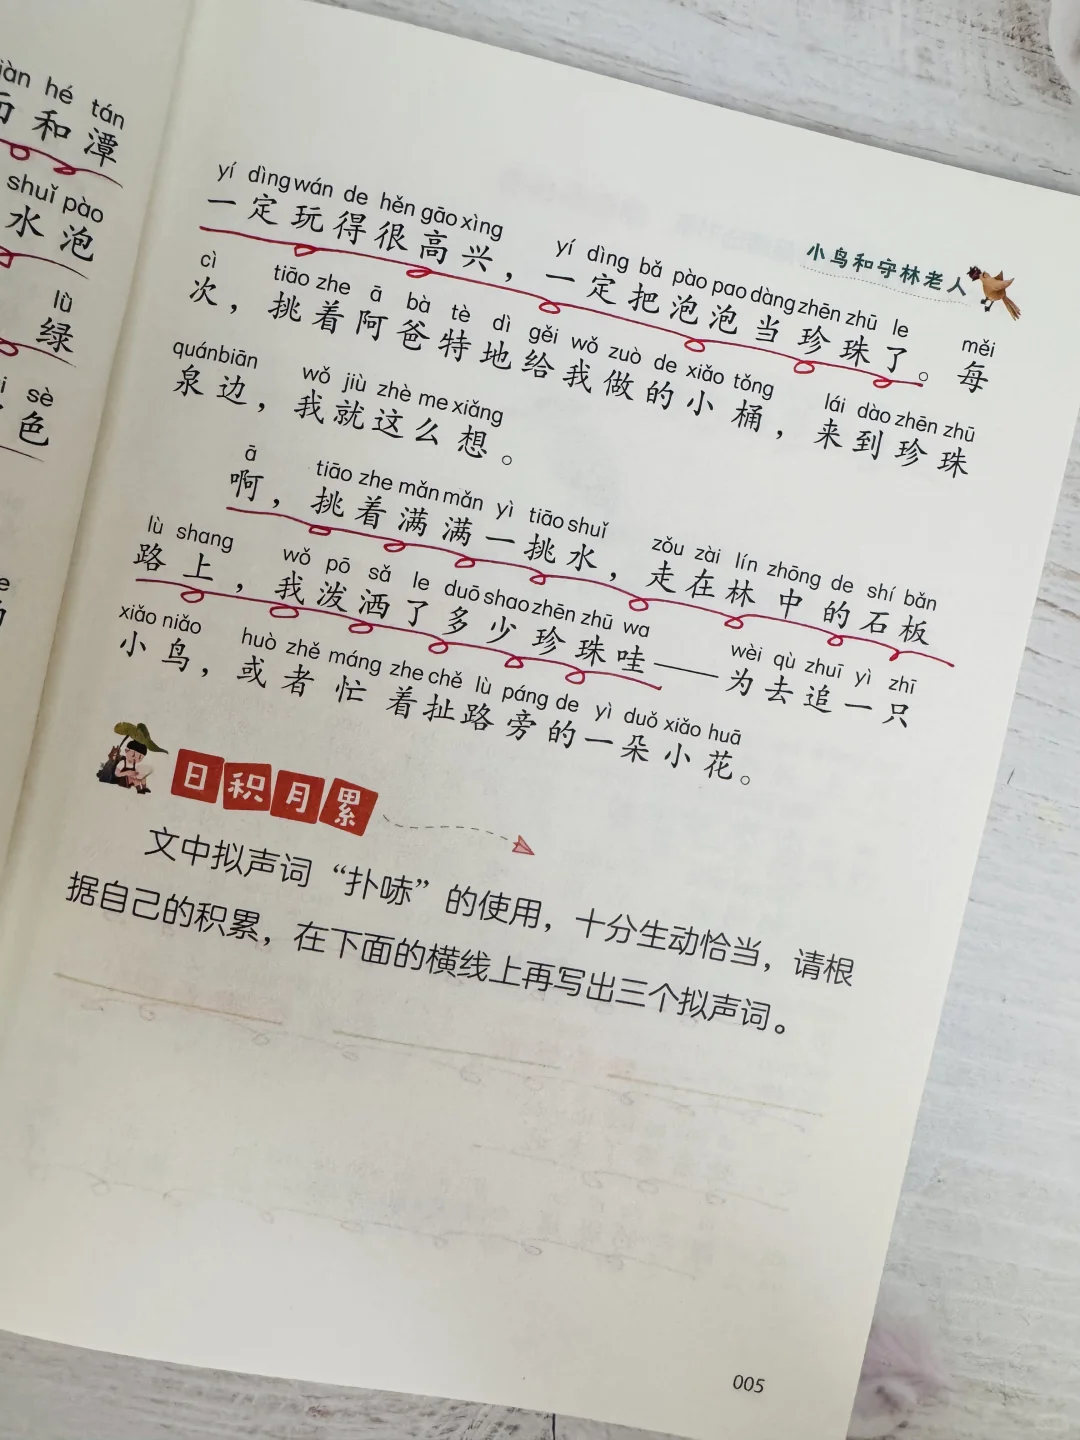 iàn hé tán
面和潭
shuǐ pào
水泡
lǜ
绿
sè
色
小鸟和守林老人
yí dìng wán de hěn gāo xìng yí dìng bǎ pào pao dàng zhēn zhū le měi
一定玩得很高兴，一定把泡泡当珍珠了。每
cì tiāo zhe ā bà tè dì gěi wǒ zuò de xiǎo tǒng lái dào zhēn zhū
次，挑着阿爸特地给我做的小桶，来到珍珠
quán biān wǒ jiù zhè me xiǎng
泉边，我就这么想。
ā tiāo zhe mǎn mǎn yì tiāo shuǐ zǒu zài lín zhōng de shí bǎn
啊，挑着满满一挑水，走在林中的石板
lù shang wǒ pō sǎ le duō shao zhēn zhū wa wèi qù zhuī yì zhī
路上，我泼洒了多少珍珠哇——为去追一只
xiǎo niǎo huò zhě máng zhe chě lù páng de yì duǒ xiǎo huā
小鸟，或者忙着扯路旁的一朵小花。
日积月累
文中拟声词“扑哧”的使用，十分生动恰当，请根
据自己的积累，在下面的横线上再写出三个拟声词。
005